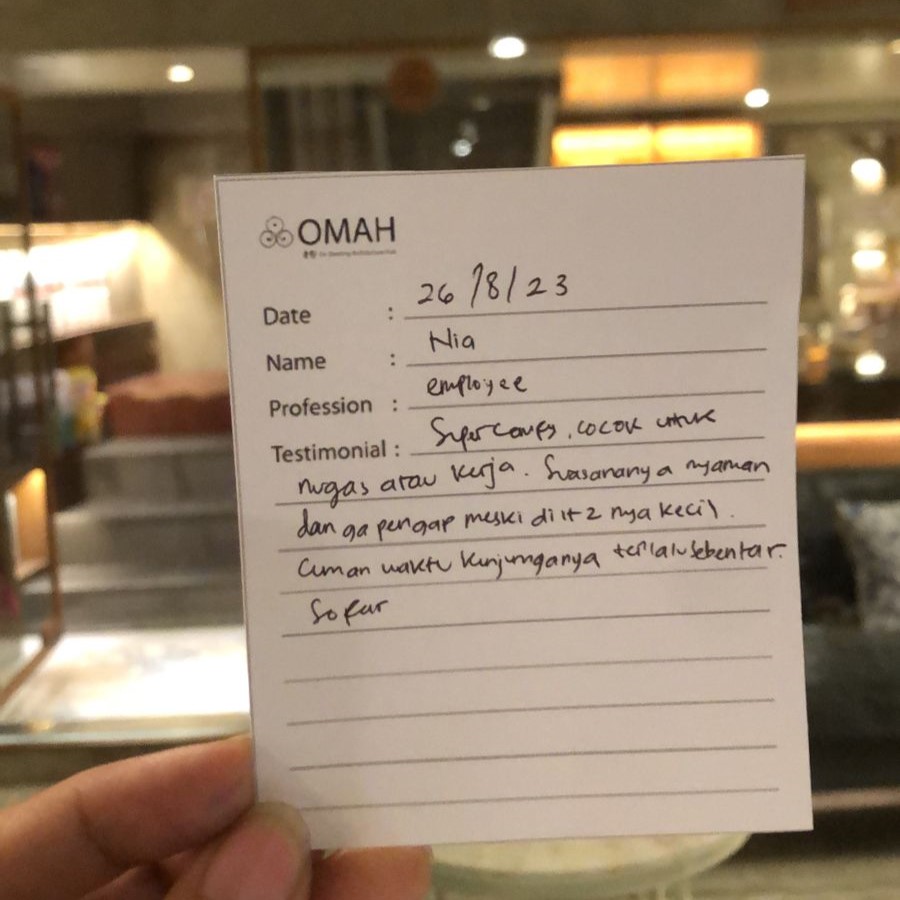 OMAH
Date : 26/8/23
Name : Nia
Profession : employee
Testimonial : Super comfy, cocok untuk
nugas atau kerja. Suasananya nyaman
dan ga pengap meski di lt 2 nya kecil.
Cuman waktu kunjunganya terlalu sebentar.
So far